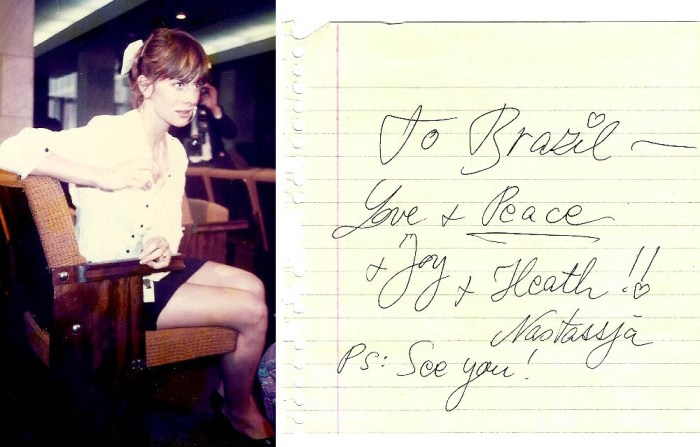 To Brazil ~
Love + Peace
+ Joy + Heath !!
Nastassja
Ps: See you!